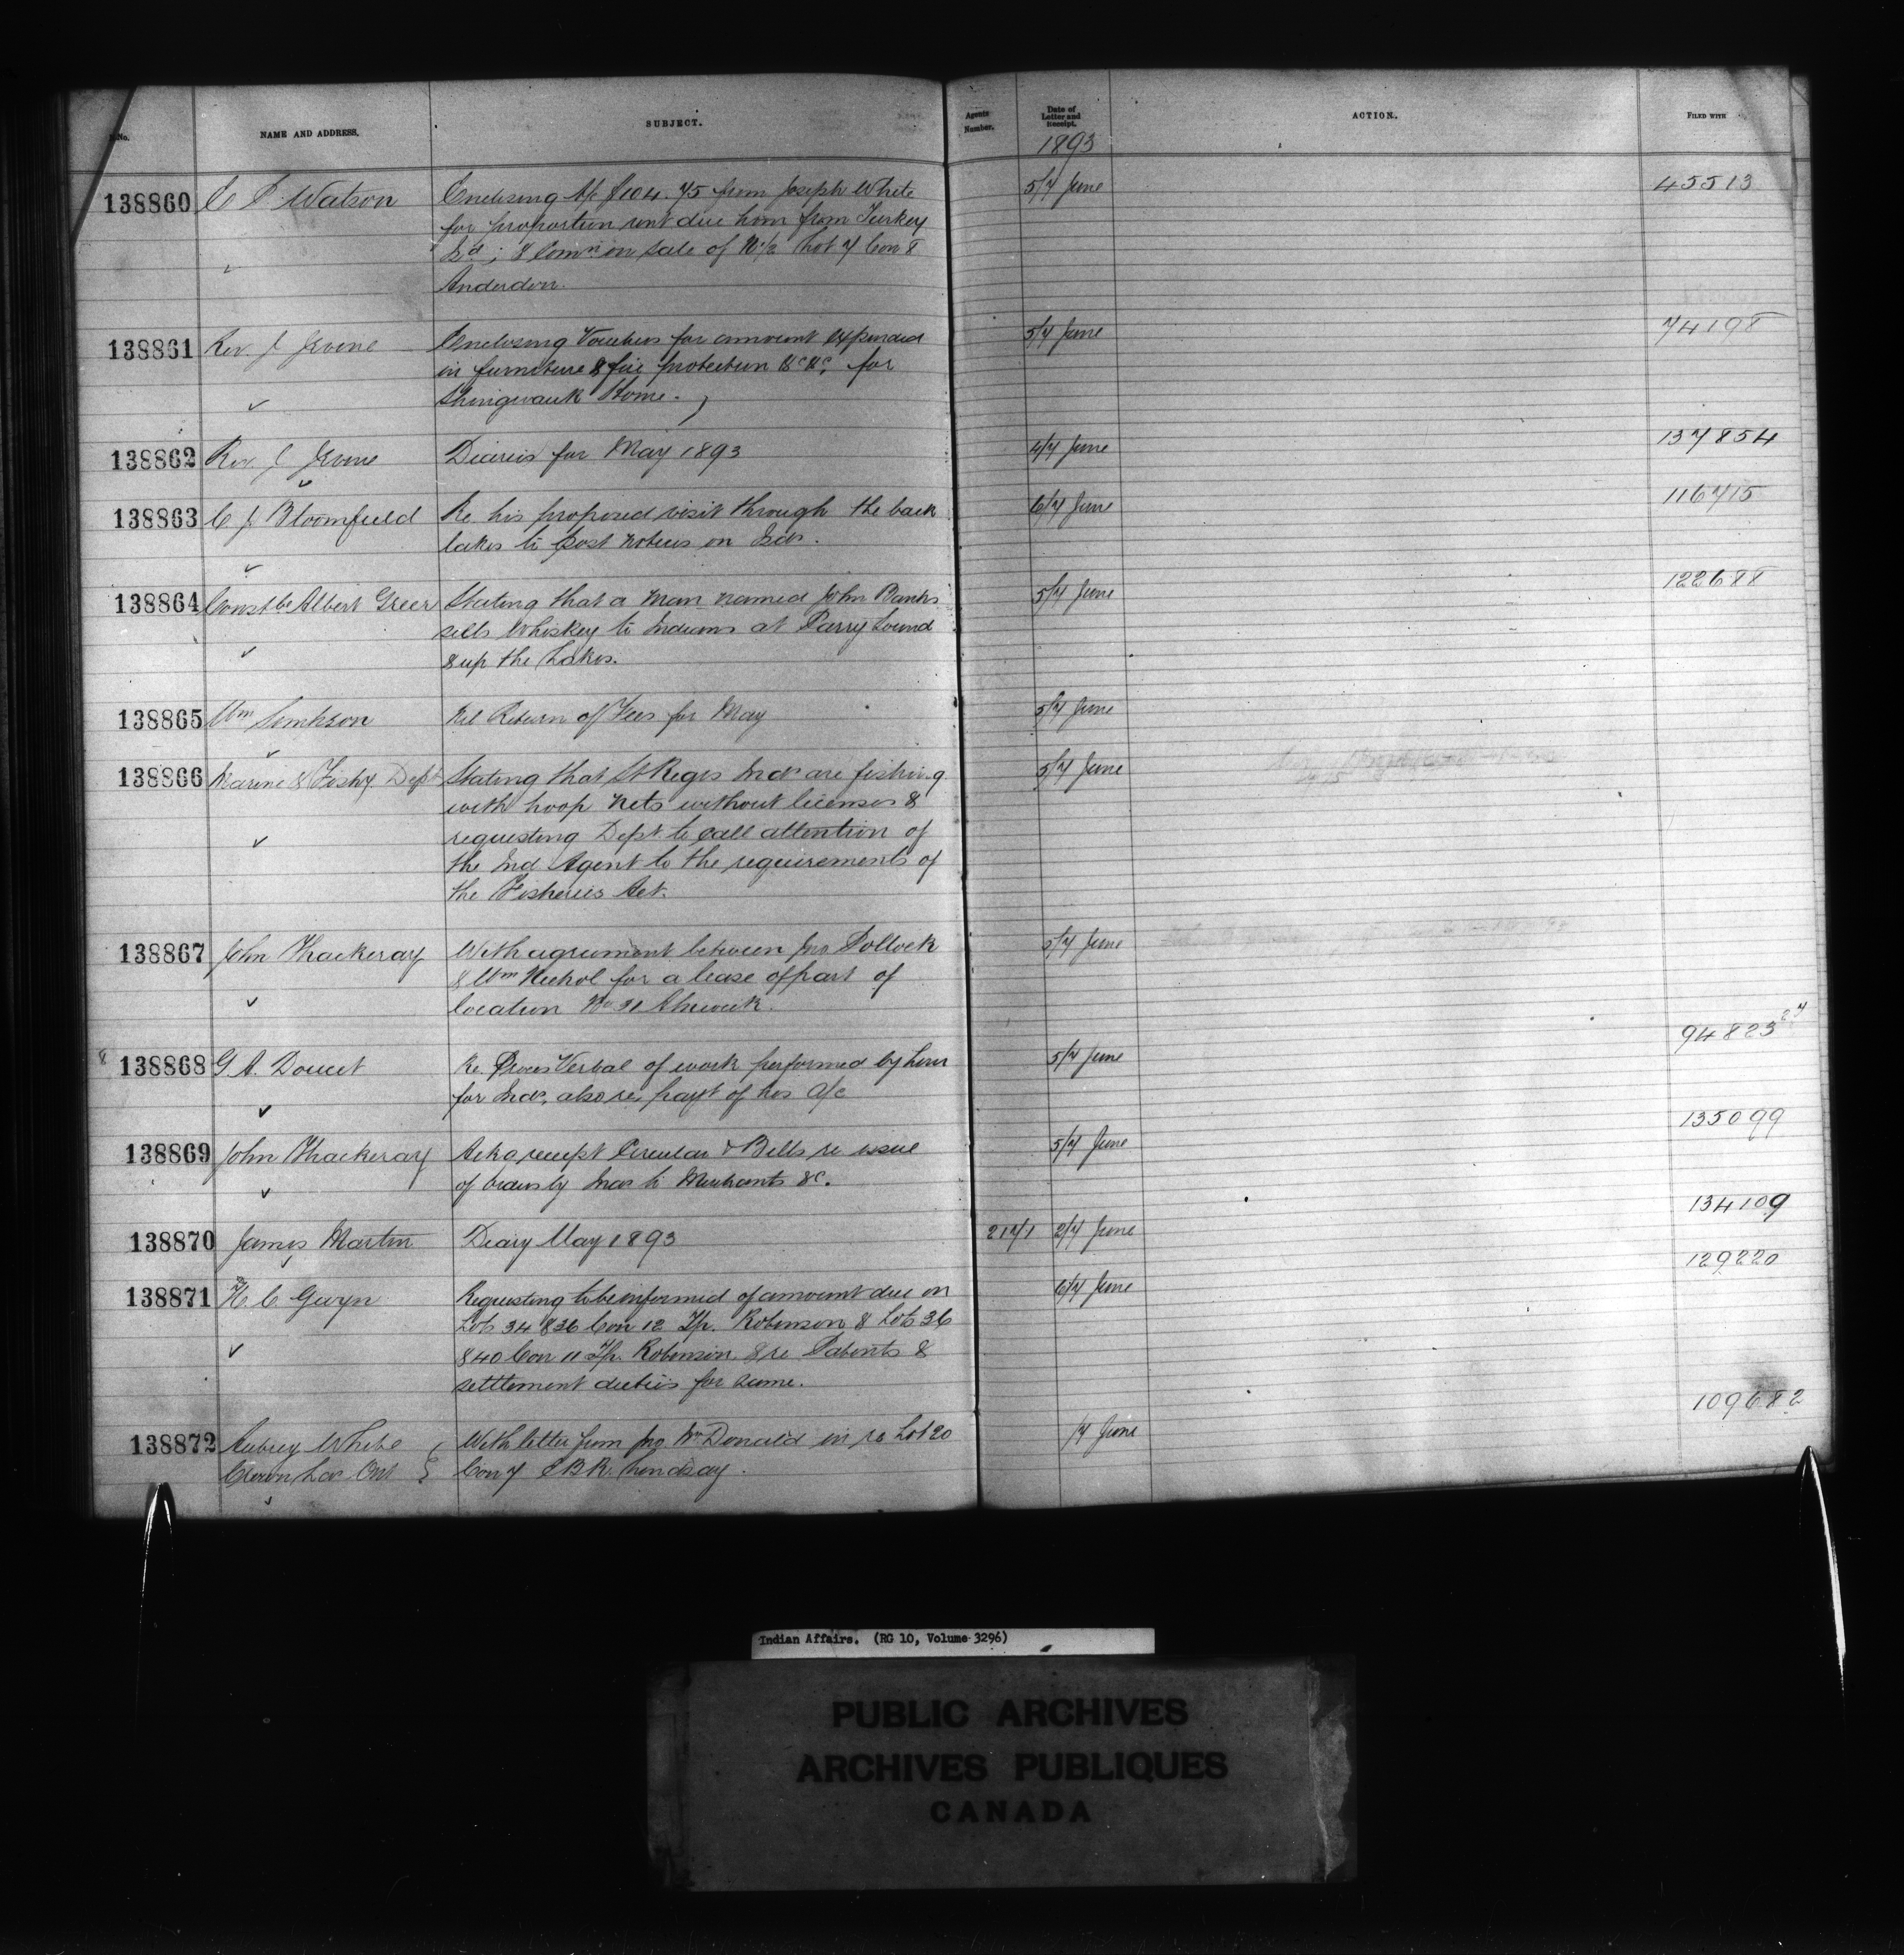 No. NAME AND ADDRESS. SUBJECT. Agents Number. Date of Letter and Receipt. ACTION. FILED WITH
1893
138860 C P Watson Enclosing A/c $104.75 from Joseph White 5/7 June 45513
for proportion rent due him from Turkey
Isd; & Comn on sale of W½ Lot 7 Con 8
Anderdon.
138861 Rev. J Irvine Enclosing Vouchers for amount expended 5/7 June 74198
in furniture & fire protection &c &c, for
Shingwauk Home.
138862 Rev. J Irvine Diaries for May 1893 4/7 June 137854
138863 C J Bloomfield Re his proposed visit through the back 6/7 June 116715
lakes to post notices on Isds.
138864 Constbe Albert Greer Stating that a man named John Banks 5/7 June 122688
sells Whiskey to Indians at Parry Sound
& up the Lakes.
138865 Wm Simpson Nil Return of Fees for May 5/7 June
138866 Marine & Fishy Dept Stating that St Regis Inds are fishing 5/7 June
with hoop nets without licenses &
requesting Dept. to call attention of
the Ind Agent to the requirements of
the Fisheries Act.
138867 John Thackeray With agreement between Jno Pollock 5/7 June
& Wm Nichol for a lease of part of
location No 31 Alnwick.
8 138868 G A. Doucet Re. Proces Verbal of work performed by him 5/7 June 94823 27
for Inds, also re payt of his A/c
138869 John Thackeray Ackg receipt Circular & Bills re issue 5/7 June 135099
of orders by Inds to Merchants &c.
138870 James Martin Diary May 1893 217/1 2/7 June 134109
138871 H. C. Gwyn Requesting to be informed of amount due on 6/7 June 129220
Lots 34 & 36 Con 12 Tp. Robinson & Lots 36
& 40 Con 11 Tp. Robinson & re Patents &
settlement duties for same.
138872 Aubrey White With letter from Jno McDonald in re Lot 20 /7 June 109682
Crown Las Ont Con 7 E B R. Lindsay.
Indian Affairs. (RG 10, Volume 3296)
PUBLIC ARCHIVES
ARCHIVES PUBLIQUES
CANADA